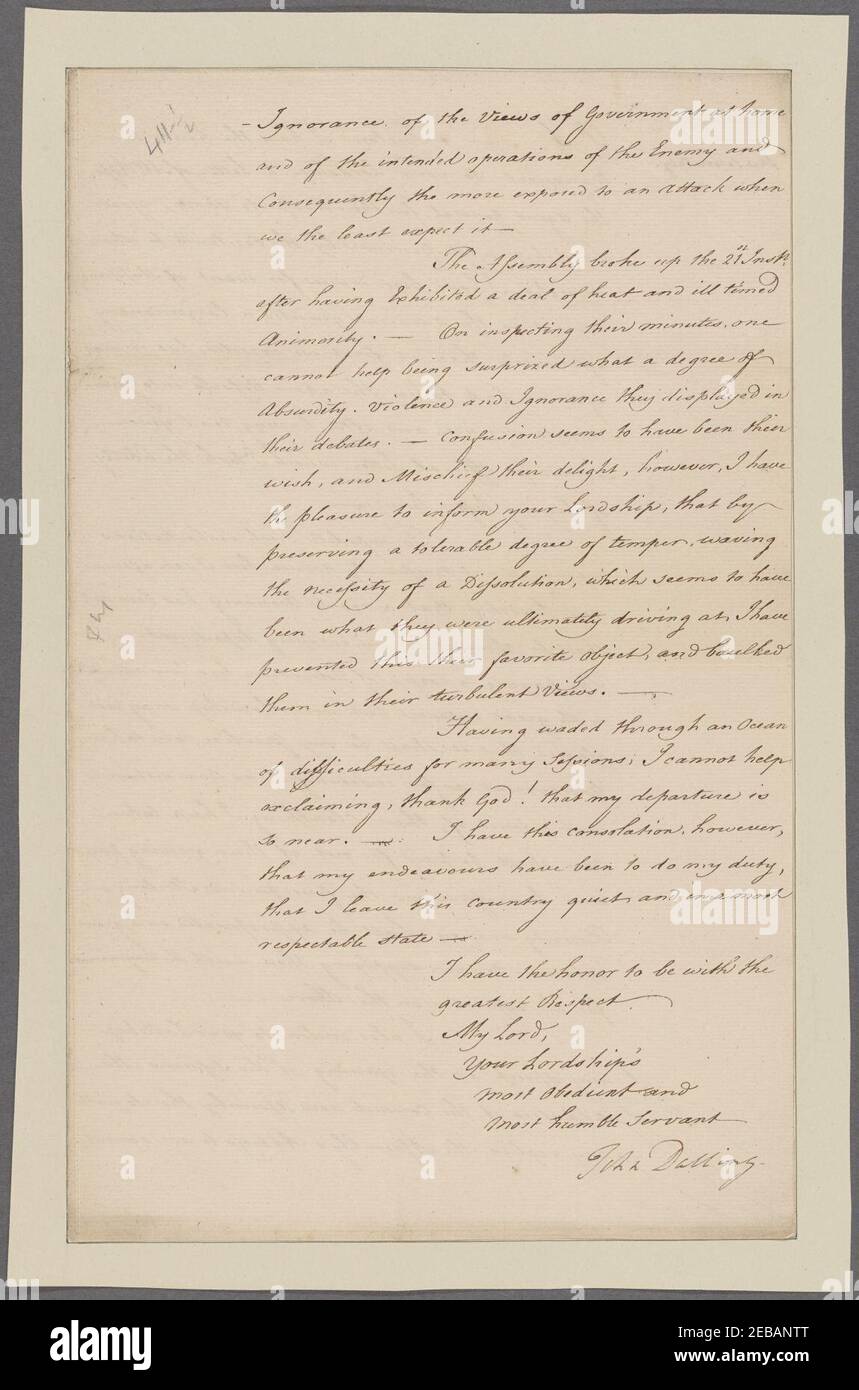 411½
- Ignorance of the Views of Government at home
and of the intended operations of the Enemy and
Consequently the more exposed to an attack when
we the least expect it —
The Assembly broke up the 21st Inst:
after having Exhibited a deal of heat and ill timed
Animosity. — On inspecting their minutes, one
cannot help being surprized what a degree of
Absurdity. Violence and Ignorance they displayed in
their debates. — Confusion seems to have been their
wish, and Mischief their delight, however, I have
the pleasure to inform your Lordship, that by
preserving a tolerable degree of temper, waving
the necessity of a Dissolution, which seems to have
been what they were ultimately driving at, I have
prevented this their favorite Object, and baulked
them in their turbulent Views. —
Having waded through an Ocean
of difficulties for many Sessions, I cannot help
exclaiming, thank God! that my departure is
so near. — I have this consolation, however,
that my endeavours have been to do my duty,
that I leave this Country quiet and in a most
respectable state —
I have the honor to be with the
greatest Respect
My Lord,
Your Lordship's
most Obedient and
most humble Servant
John Dalling
alamy
a
Image ID: 2EBANTT
www.alamy.com